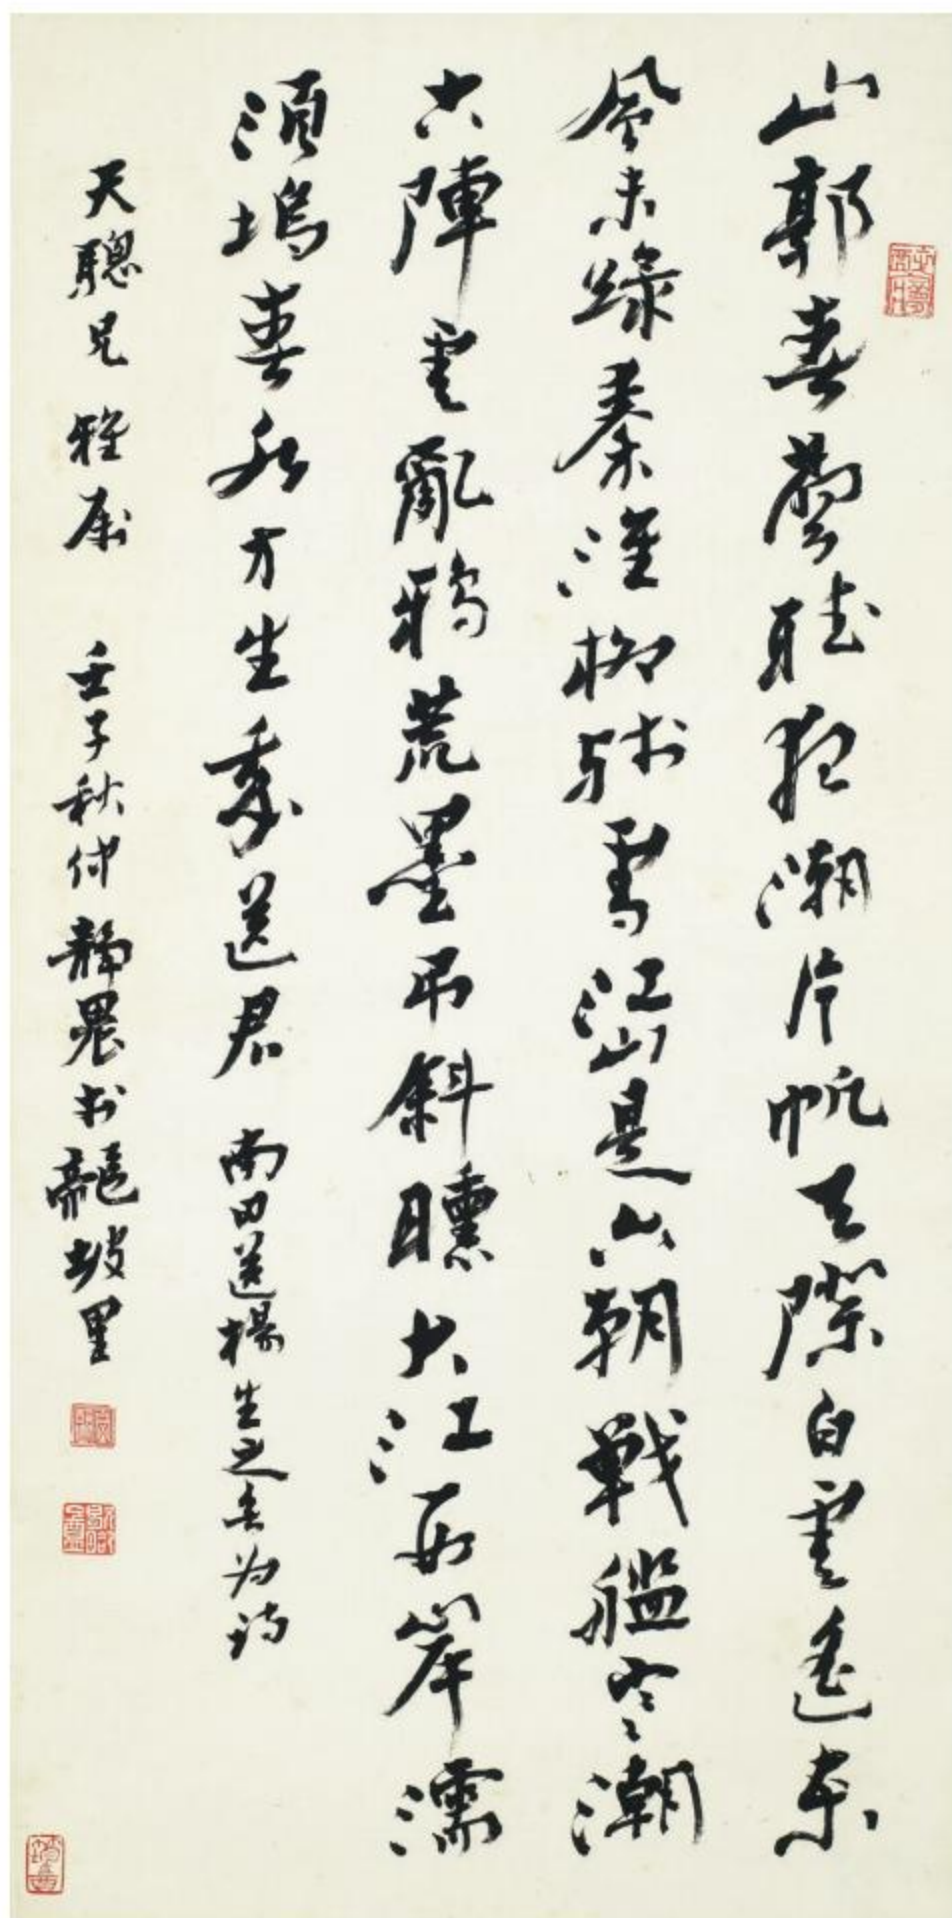 山郭春聲聽夜潮片帆天際白雲遙東
風未綠秦淮柳殘雪江山是六朝戰艦寒潮
古陣雲亂鴉荒壘弔斜曛大江西岸濡
須塢春水方生我送君 南田送楊生之为诗
天聰兄雅屬 壬子秋仲靜農於龍坡里